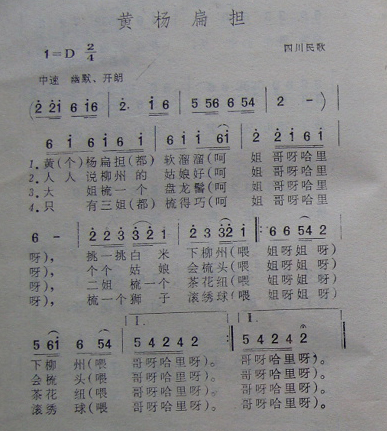 黄杨扁担
1=D 2/4
四川民歌
中速 幽默、开朗
(2 2i 6 i6 | 2· i 6 | 5 56 6 54 | 2 -)
6 i 6 i i i i 6i 2 2i 6 i
1.黄(个)杨扁担(都) 软溜溜(呵 姐 哥呀哈里
2.人人说柳州的 姑娘好(呵 姐 哥呀哈里
3.大 姐梳一个 盘龙髻(呵 姐 哥呀哈里
4.只 有三姐(都) 梳得巧(呵 姐 哥呀哈里
6 - | 2 2 3 3 2 1 2 3 2 1 :6 6 54 2
呀), 挑一挑白 米 下柳州(喂 姐呀姐 呀)
呀), 个个 姑 娘 会梳头(喂 姐呀姐 呀)
呀), 二姐 梳一个 茶花纽(喂 姐呀姐 呀)
呀), 梳一个狮 子 滚绣球(喂 姐呀姐 呀)
I. II.
5 61 6 54 | 5 4 2 4 2 :| 5 4 2 4 2
下柳 州(喂 哥呀哈里呀)。 哥呀哈里呀)。
会梳 头(喂 哥呀哈里呀)。 哥呀哈里呀)。
茶花 纽(喂 哥呀哈里呀)。 哥呀哈里呀)。
滚绣 球(喂 哥呀哈里呀)。 哥呀哈里呀)。